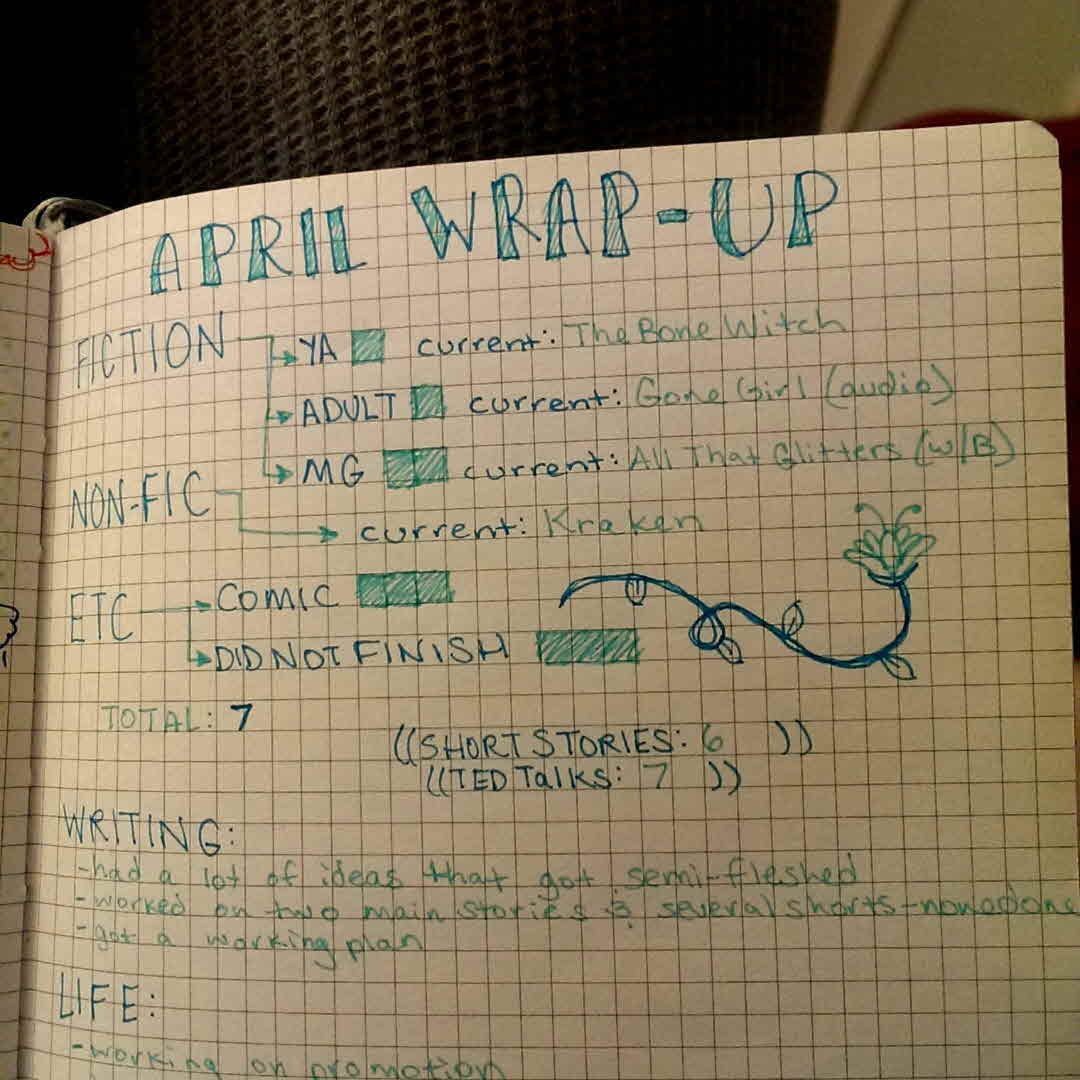 APRIL WRAP-UP
FICTION YA current: The Bone Witch
ADULT current: Gone Girl (audio)
MG current: All That Glitters (w/B)
NON-FIC
current: Kraken
ETC COMIC
DID NOT FINISH
TOTAL: 7
((SHORT STORIES: 6 ))
((TED Talks: 7 ))
WRITING:
-had a lot of ideas that got semi-fleshed
-worked on two main stories & several shorts-none done
-got a working plan
LIFE:
-working on promotion